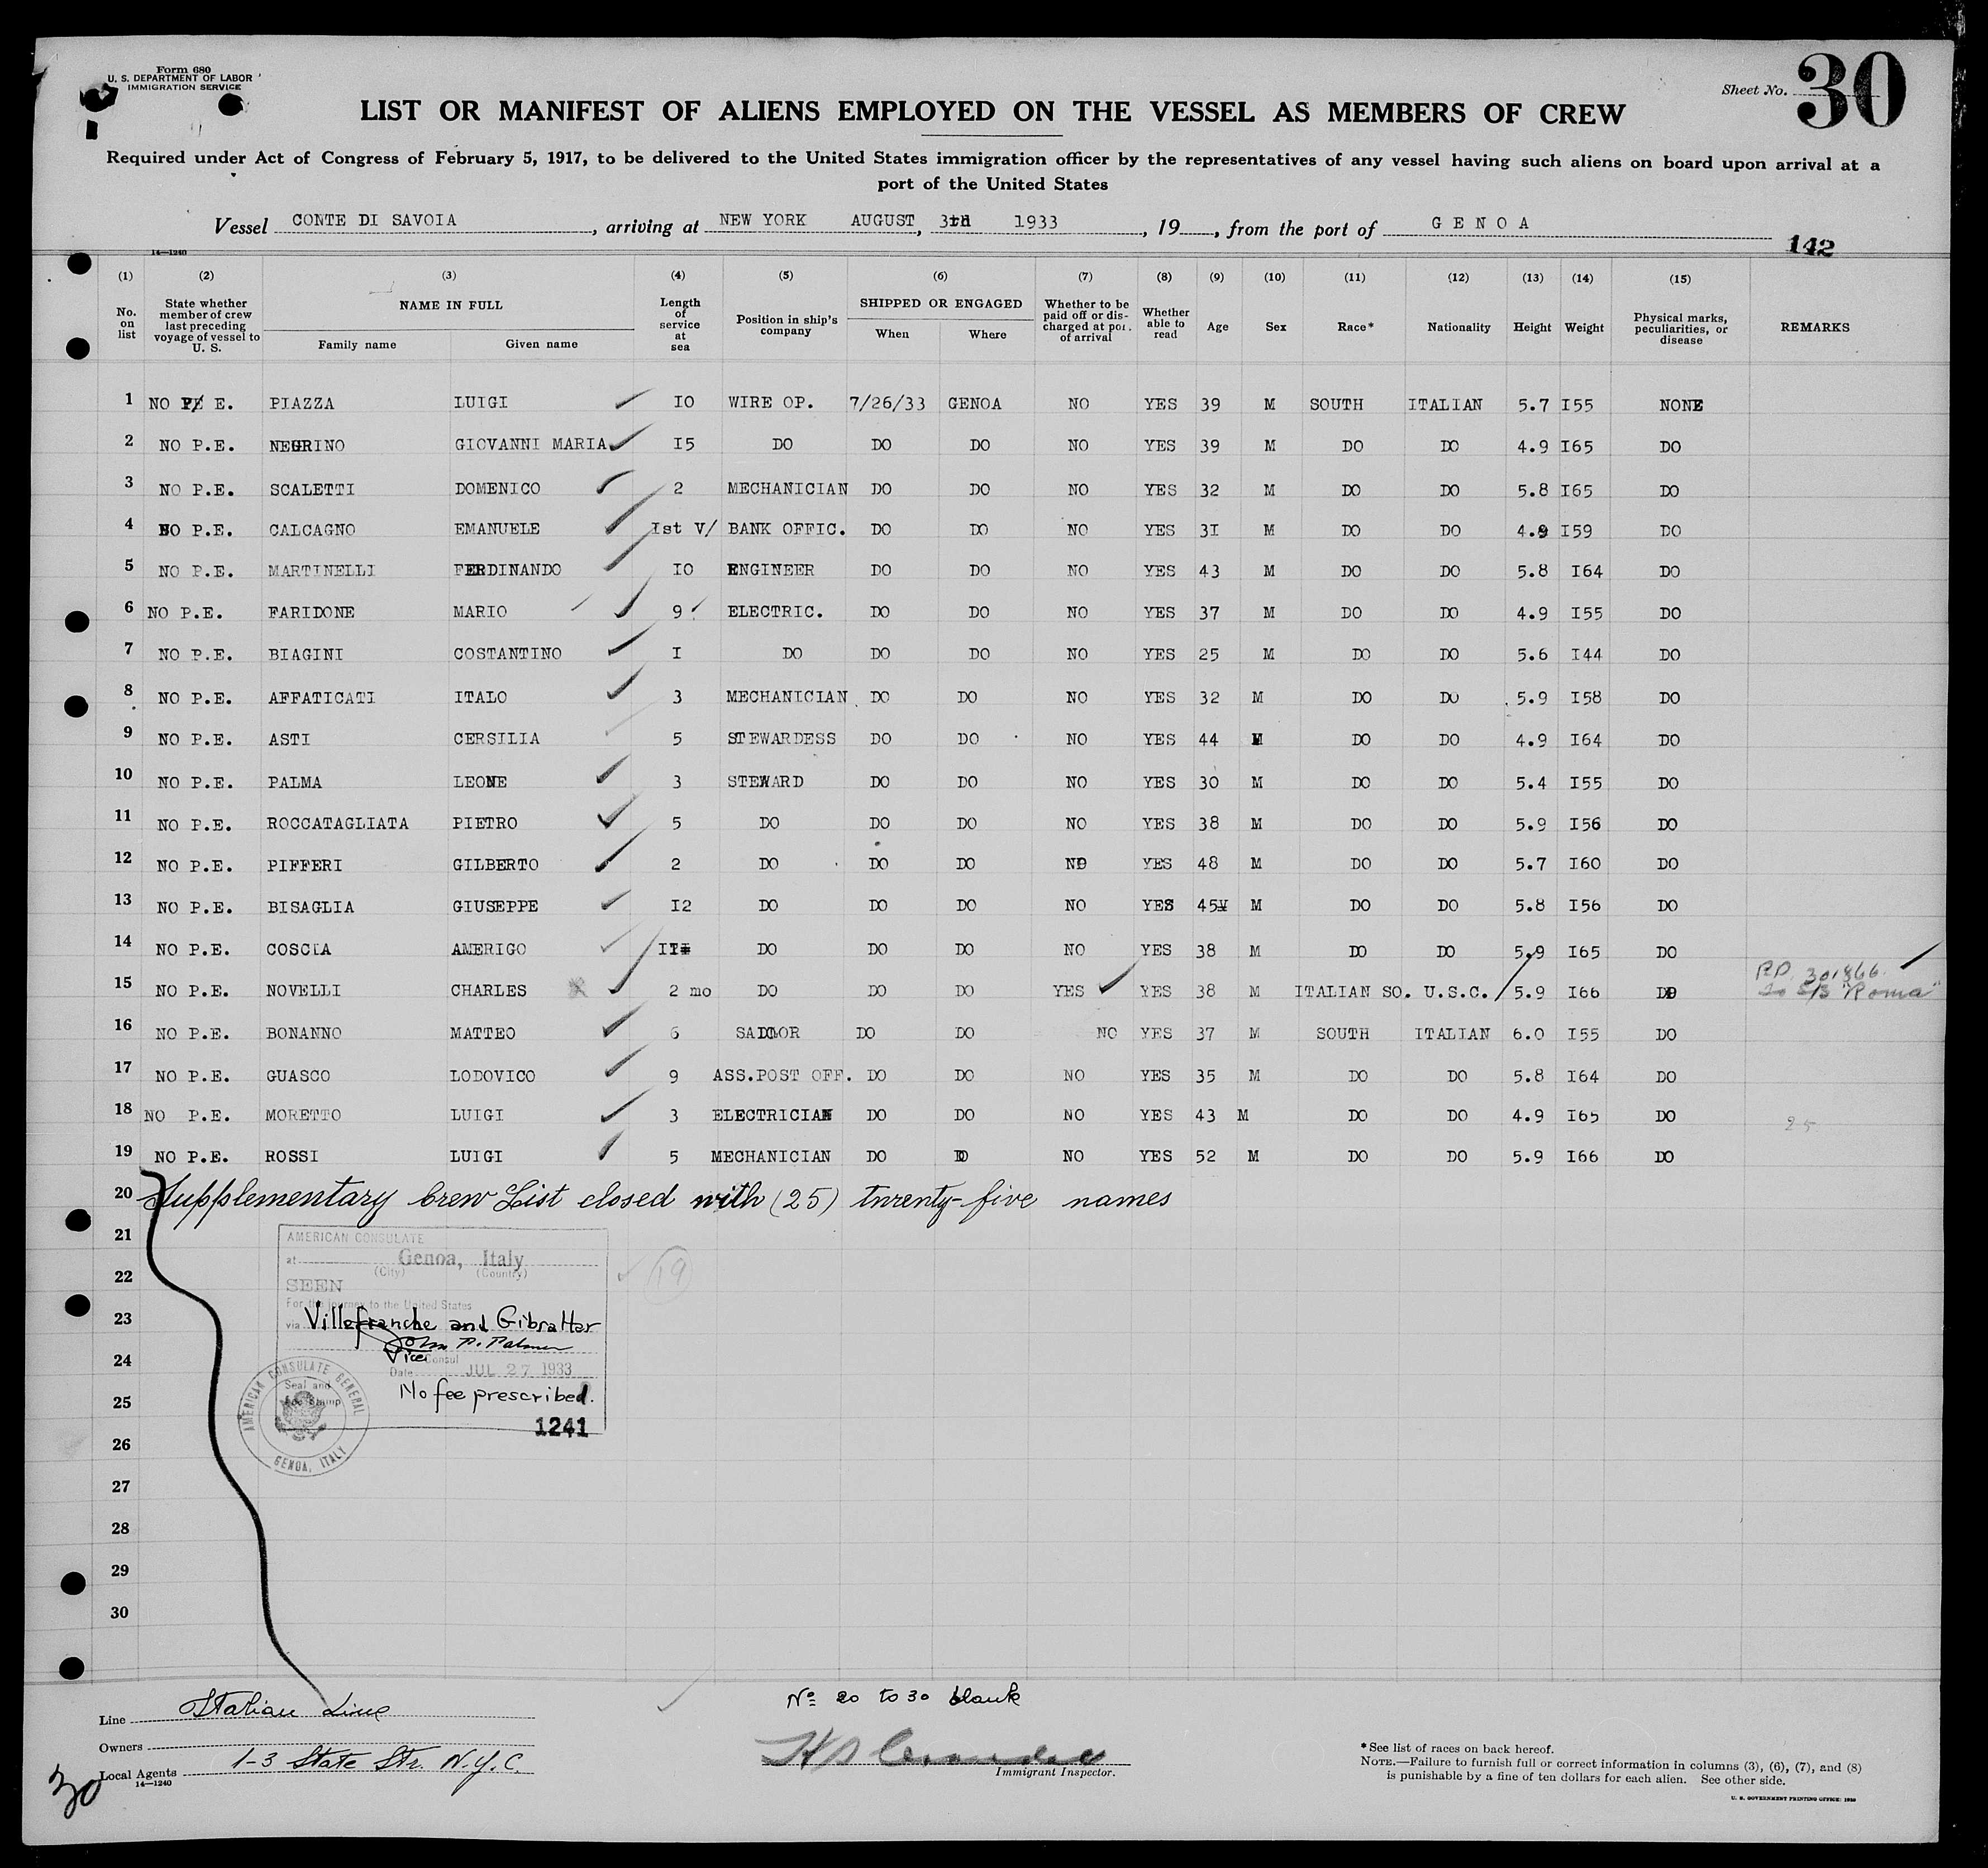 Form 680
U. S. DEPARTMENT OF LABOR
IMMIGRATION SERVICE
Sheet No. 30
LIST OR MANIFEST OF ALIENS EMPLOYED ON THE VESSEL AS MEMBERS OF CREW
Required under Act of Congress of February 5, 1917, to be delivered to the United States immigration officer by the representatives of any vessel having such aliens on board upon arrival at a
port of the United States
Vessel CONTE DI SAVOIA, arriving at NEW YORK AUGUST, 3 1933, 19, from the port of GENOA
14—1240
142
(1) (2) (3) (4) (5) (6) (7) (8) (9) (10) (11) (12) (13) (14) (15)
No. on list State whether member of crew last preceding voyage of vessel to U. S. NAME IN FULL Family name Given name Length of service at sea Position in ship's company SHIPPED OR ENGAGED When Where Whether to be paid off or discharged at port of arrival Whether able to read Age Sex Race* Nationality Height Weight Physical marks, peculiarities, or disease REMARKS
1 NO P.E. PIAZZA LUIGI I0 WIRE OP. 7/26/33 GENOA NO YES 39 M SOUTH ITALIAN 5.7 I55 NONE
2 NO P.E. NEGRINO GIOVANNI MARIA I5 DO DO DO NO YES 39 M DO DO 4.9 I65 DO
3 NO P.E. SCALETTI DOMENICO 2 MECHANICIAN DO DO NO YES 32 M DO DO 5.8 I65 DO
4 NO P.E. CALCAGNO EMANUELE Ist V/ BANK OFFIC. DO DO NO YES 3I M DO DO 4.9 I59 DO
5 NO P.E. MARTINELLI FERDINANDO I0 ENGINEER DO DO NO YES 43 M DO DO 5.8 I64 DO
6 NO P.E. FARIDONE MARIO 9 ELECTRIC. DO DO NO YES 37 M DO DO 4.9 I55 DO
7 NO P.E. BIAGINI COSTANTINO I DO DO DO NO YES 25 M DO DO 5.6 I44 DO
8 NO P.E. AFFATICATI ITALO 3 MECHANICIAN DO DO NO YES 32 M DO DO 5.9 I58 DO
9 NO P.E. ASTI CERSILIA 5 STEWARDESS DO DO NO YES 44 DO DO 4.9 I64 DO
10 NO P.E. PALMA LEONE 3 STEWARD DO DO NO YES 30 M DO DO 5.4 I55 DO
11 NO P.E. ROCCATAGLIATA PIETRO 5 DO DO DO NO YES 38 M DO DO 5.9 I56 DO
12 NO P.E. PIFFERI GILBERTO 2 DO DO DO NO YES 48 M DO DO 5.7 I60 DO
13 NO P.E. BISAGLIA GIUSEPPE I2 DO DO DO NO YES 45 M DO DO 5.8 I56 DO
14 NO P.E. COSCIA AMERIGO DO DO DO NO YES 38 M DO DO 5.9 I65 DO
15 NO P.E. NOVELLI CHARLES 2 mo DO DO DO YES YES 38 M ITALIAN SO. U.S.C. 5.9 I66 DO P.P. 301866. To S/S "Roma"
16 NO P.E. BONANNO MATTEO 6 SAILOR DO DO NO YES 37 M SOUTH ITALIAN 6.0 I55 DO
17 NO P.E. GUASCO LODOVICO 9 ASS.POST OFF. DO DO NO YES 35 M DO DO 5.8 I64 DO
18 NO P.E. MORETTO LUIGI 3 ELECTRICIAN DO DO NO YES 43 M DO DO 4.9 I65 DO 25
19 NO P.E. ROSSI LUIGI 5 MECHANICIAN DO DO NO YES 52 M DO DO 5.9 I66 DO
20 Supplementary Crew List closed with (25) twenty-five names
21
22
23
24
25
26
27
28
29
30
AMERICAN CONSULATE
at Genoa, Italy
(City) (Country)
SEEN
For the journey to the United States
via Villefranche and Gibraltar
John P. Palmer
Vice Consul
Date JUL 27 1933
No fee prescribed.
1241
Seal and
Fee Stamp
AMERICAN CONSULATE GENERAL
GENOA, ITALY
19
Line Italian Line
Owners
Local Agents 1-3 State Str. N.Y.C.
14—1240
30
Nº 20 to 30 blank
Immigrant Inspector.
*See list of races on back hereof.
NOTE.—Failure to furnish full or correct information in columns (3), (6), (7), and (8)
is punishable by a fine of ten dollars for each alien. See other side.
U. S. GOVERNMENT PRINTING OFFICE: 1930